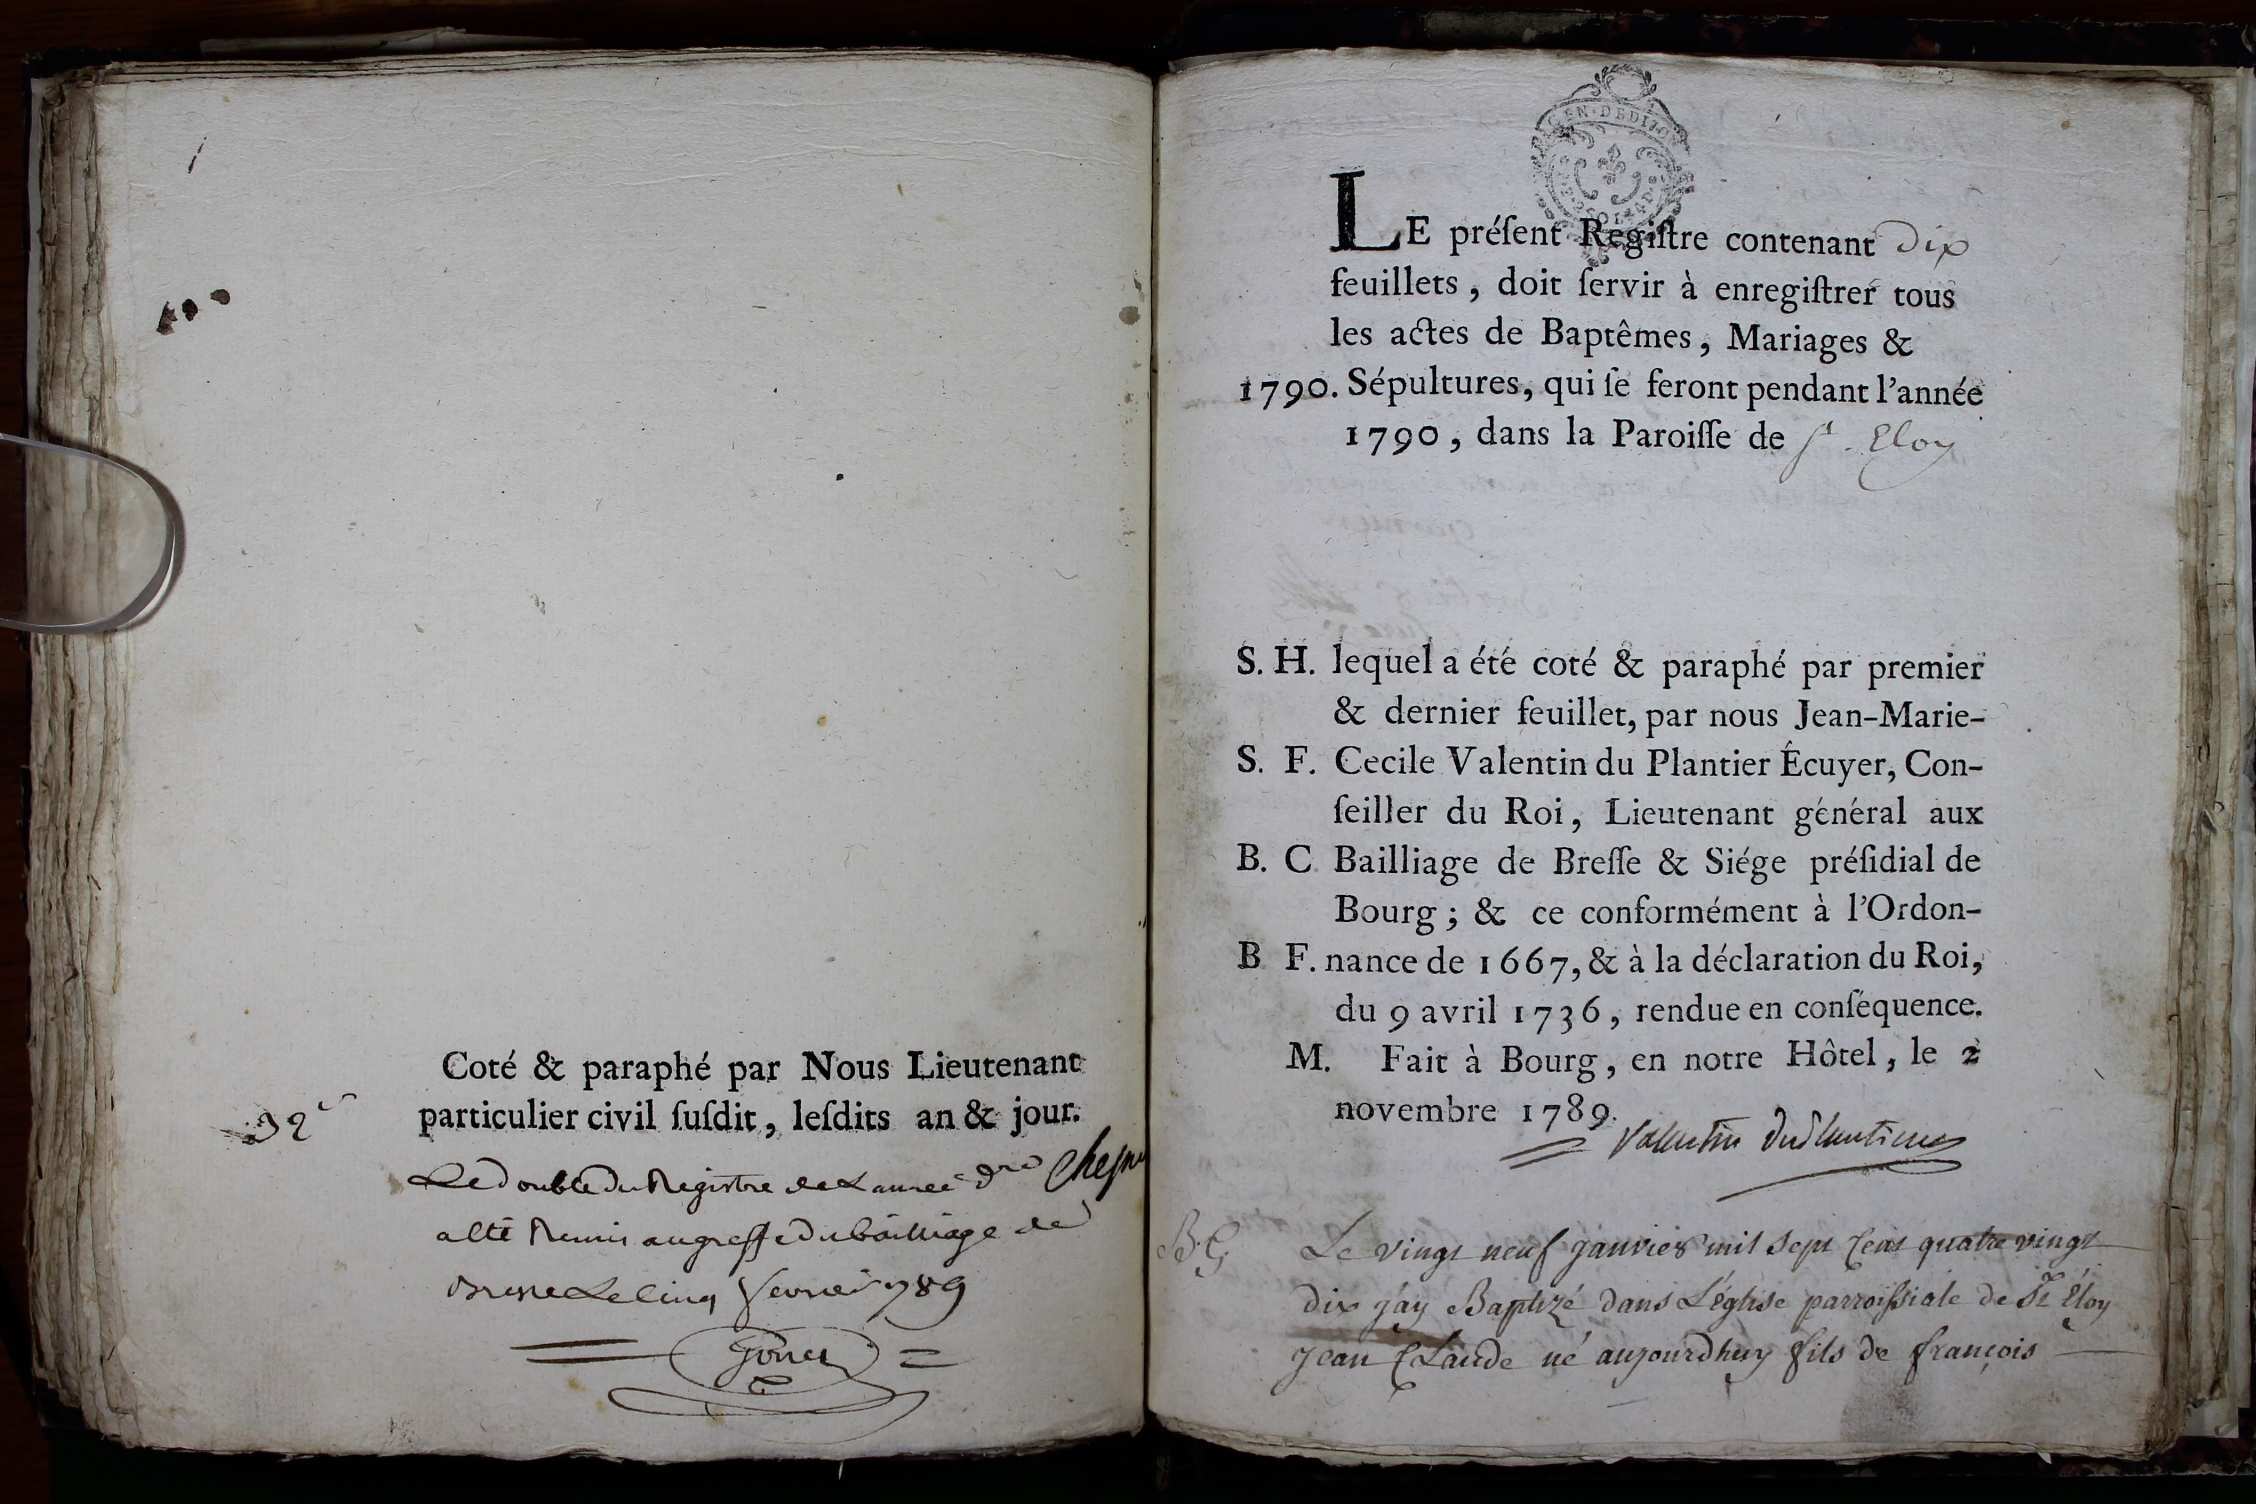 Coté & paraphé par Nous Lieutenant
particulier civil ſuſdit, leſdits an & jour.
Le double du Registre de L'année dre
a été Remis au greffe du bailliage de
Bresse Le cinq fevrier 1789
GEN · DE DIJON
LE préſent Regiſtre contenant dix
feuillets, doit ſervir à enregiſtrer tous
les actes de Baptêmes, Mariages &
1790. Sépultures, qui ſe feront pendant l'année
1790, dans la Paroiſſe de St. Eloy
S. H. lequel a été coté & paraphé par premier
& dernier feuillet, par nous Jean-Marie-
S. F. Cecile Valentin du Plantier Écuyer, Con-
ſeiller du Roi, Lieutenant général aux
B. C Bailliage de Breſſe & Siége préſidial de
Bourg; & ce conformément à l'Ordon-
B F. nance de 1667, & à la déclaration du Roi,
du 9 avril 1736, rendue en conſéquence.
M. Fait à Bourg, en notre Hôtel, le 2
novembre 1789.
Valentin Duplantier
B. G Le vingt neuf janvier mil sept Cent quatre vingt
dix j'ay Baptizé dans L'église parroissiale de St Éloy
Jean Claude né aujourdhuy fils de françois